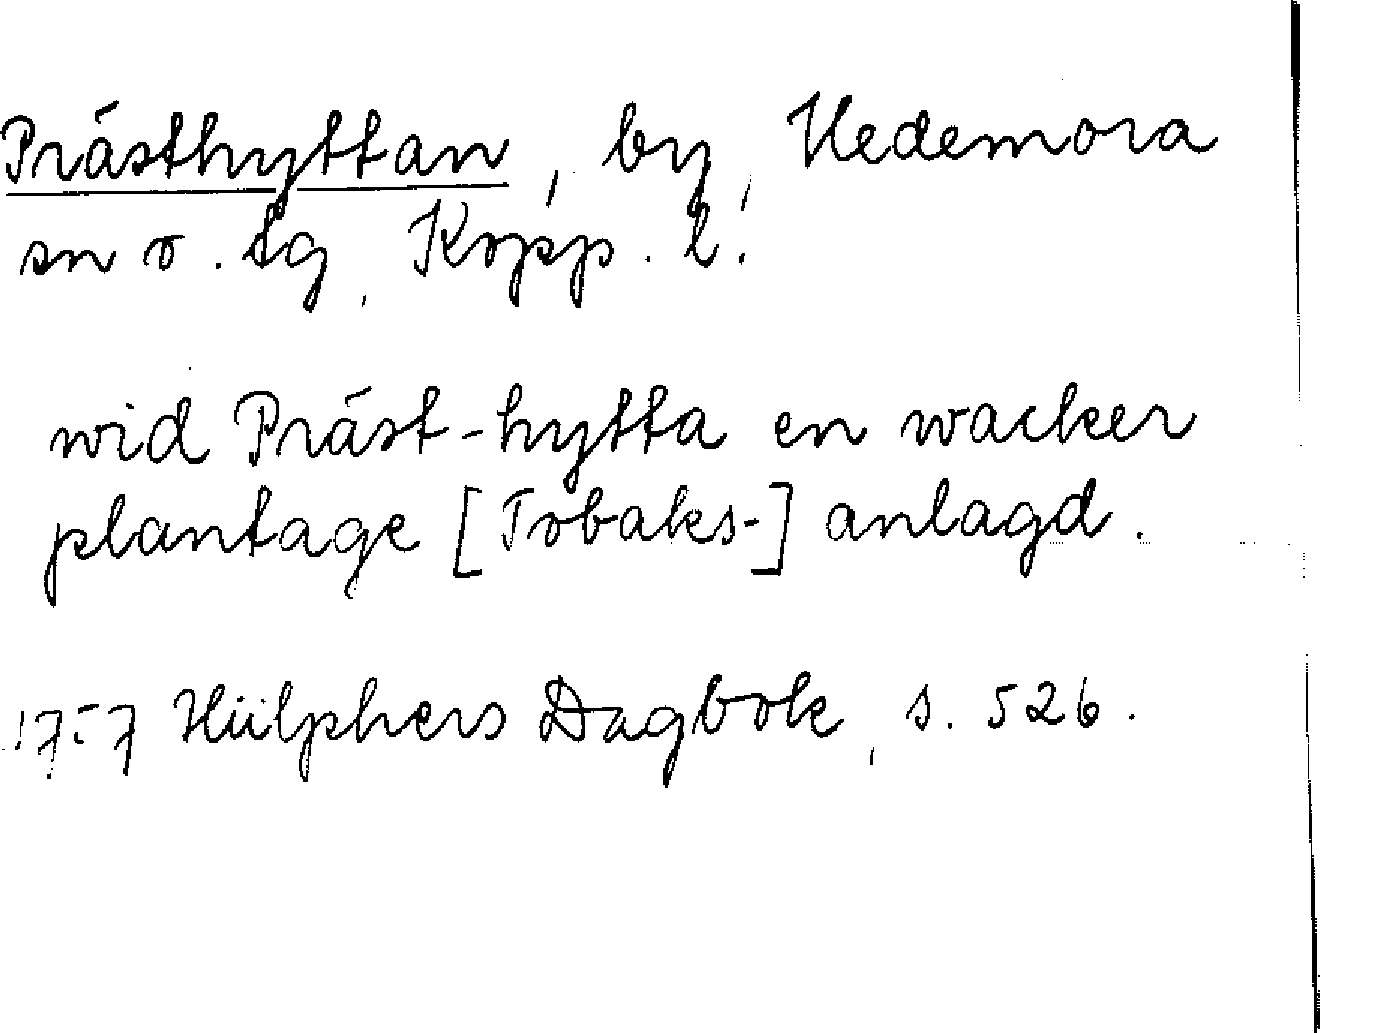 Prästhyttan, by, Hedemora
sn o. tg, Kopp. l.
wid Präst-hytta en wacker
plantage [Tobaks-] anlagd.
1757 Hülphers Dagbok, s. 526.